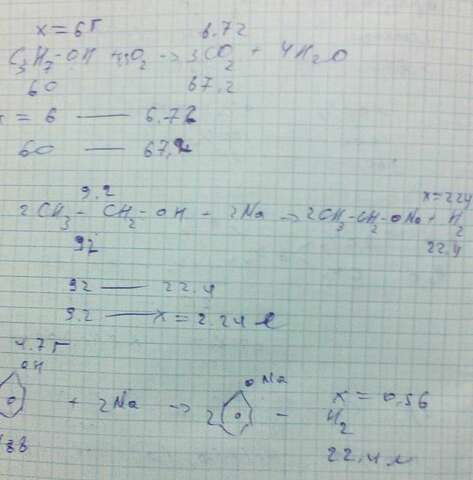 x = 6г 6.72
C3H7-OH + O2 → 3CO2 + 4H2O
60 67,2
= 6 — 6.72
60 — 67,2
9.2 x=2.24
2CH3-CH2-OH - 2Na → 2CH3-CH2-ONa + H2
92 22.4
92 — 22.4
9.2 — x = 2.24 л
4.7г
OH ONa x = 0,56
+ 2Na → 2 - H2
188 22.4 л